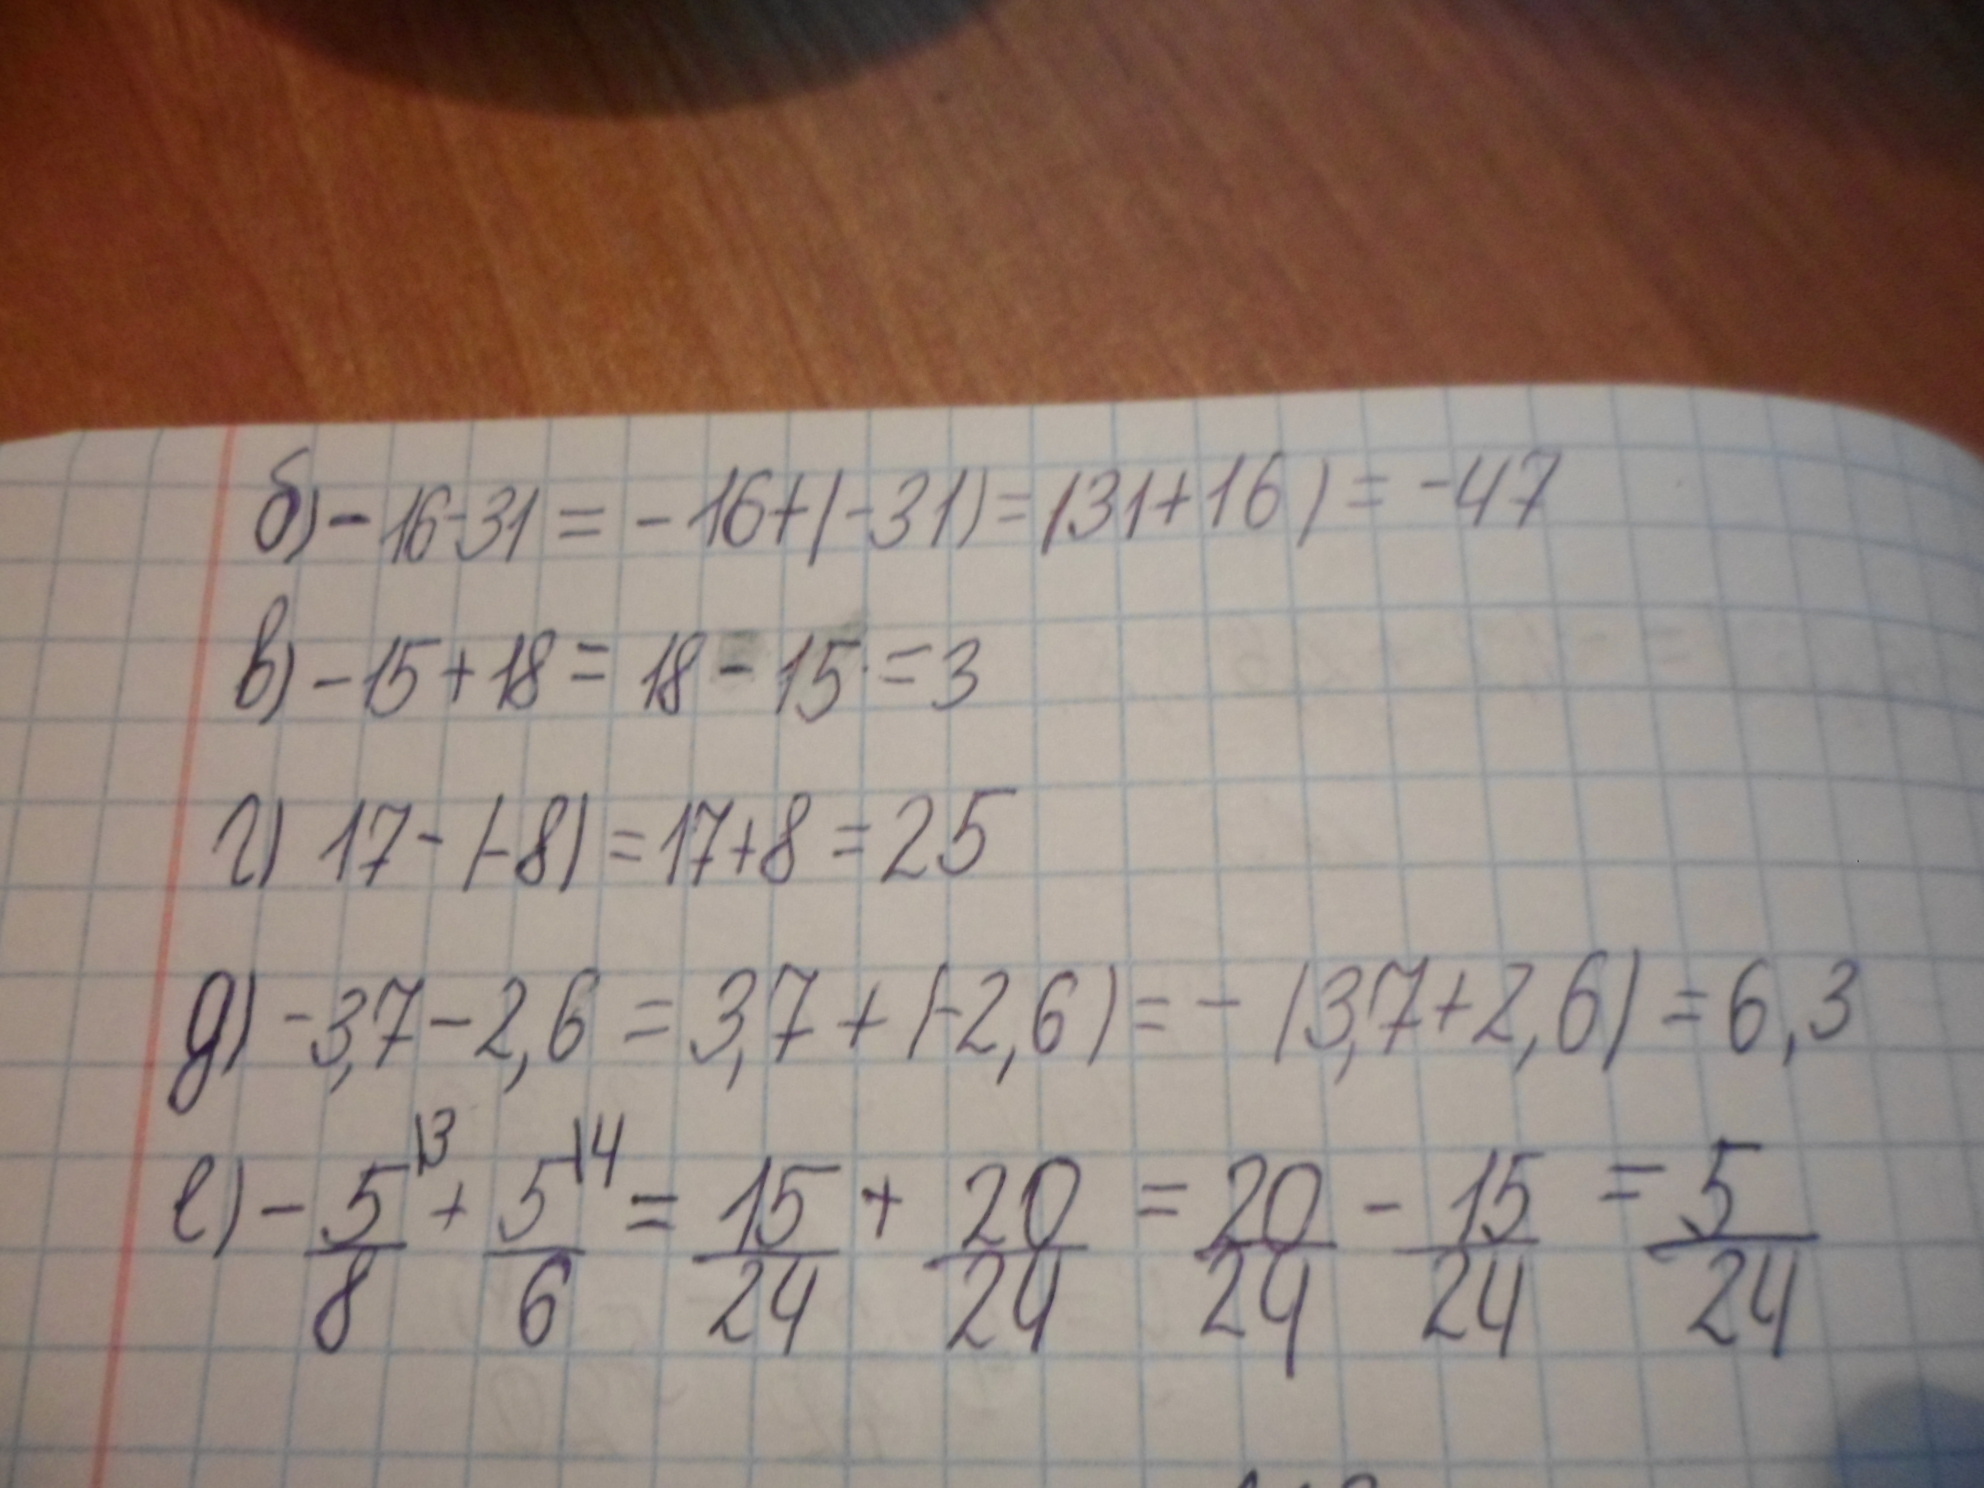 б) - 16-31 = - 16+(-31) = (31+16) = -47
в) -15+18 = 18 - 15 = 3
г) 17- (-8) = 17+8 = 25
д) -3,7-2,6 = 3,7 + (-2,6) = - (3,7+2,6) = 6,3
е) - 5/8 \3 + 5/6 \4 = 15/24 + 20/24 = 20/24 - 15/24 = 5/24